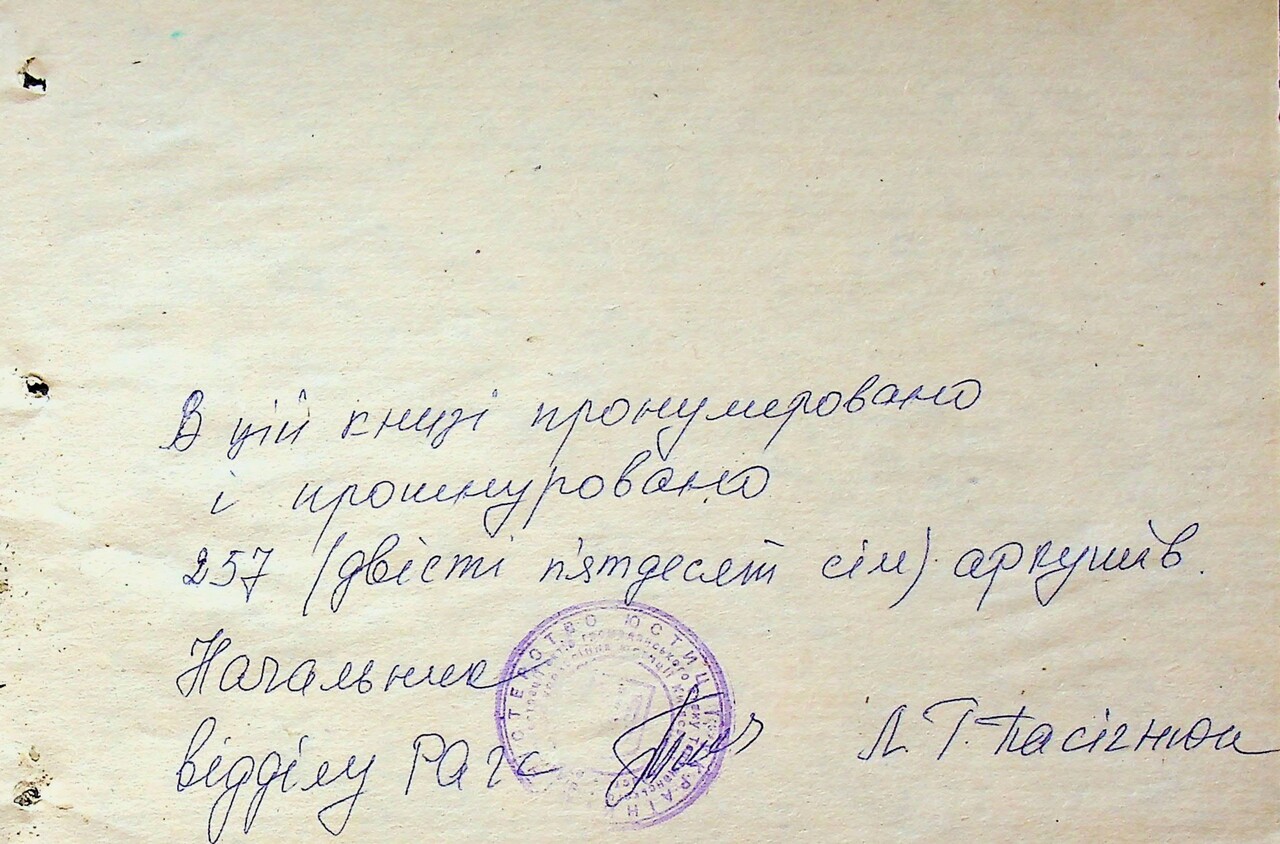 В цій книзі пронумеровано
і прошнуровано
257 (двісті п'ятдесят сім) аркушів.
Начальник
відділу РАГС
Л Т Пасічнюк
ЮСТИЦІЇ